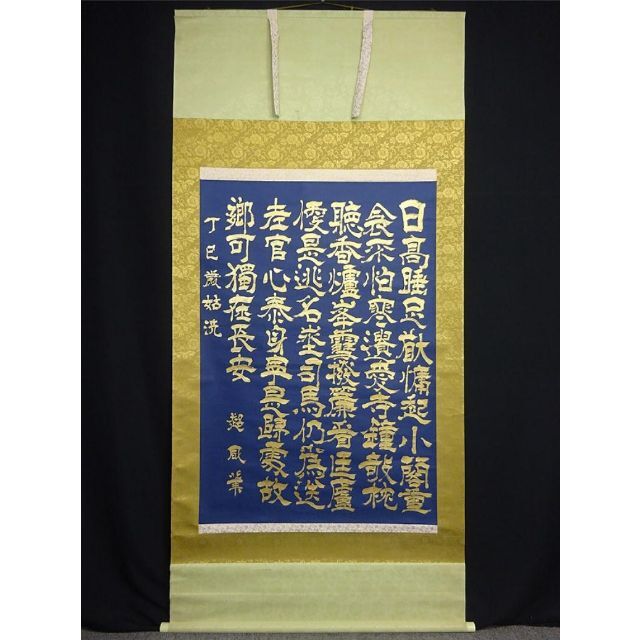 日高睡足猶慵起小閣重
衾不怕寒遺愛寺鐘欹枕
聽香爐峯雪撥簾看匡廬
便是逃名地司馬仍為送
老官心泰身寧是歸處故
鄉可獨在長安
丁巳歲姑洗